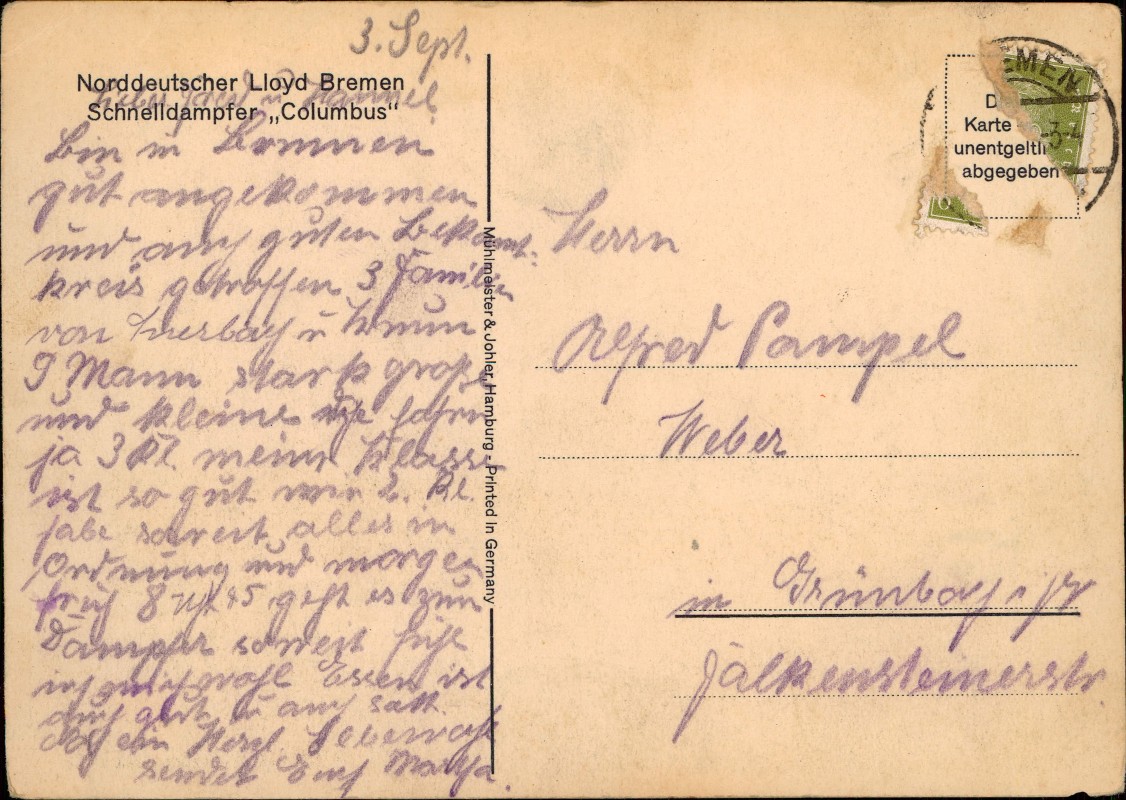 3. Sept.
Norddeutscher Lloyd Bremen
Schnelldampfer „Columbus“
Lieber Fred u Hannel
Bin in Bremen
gut angekommen
und auch guten Bekannt-
kreis getroffen 3 Familien
von u
9 Mann stark große
und kleine fahrn
ja 3 Kl. meine Klasse
ist so gut wie 2. Kl.
habe soweit alles in
Ordnung und morgen
früh 8 Uhr 45 geht es zum
Dampfer soweit fühl
ich mich wohl Essen ist
auch gut u auch satt.
ein Herzl. Lebewohl
sendet Euch Martha.
Mühlmeister & Johler, Hamburg - Printed in Germany
EMEN
D
Karte
unentgeltli
abgegeben
Herrn
Alfred Pampel
Weber
in Grünbach i/V
Falkensteinerstr.